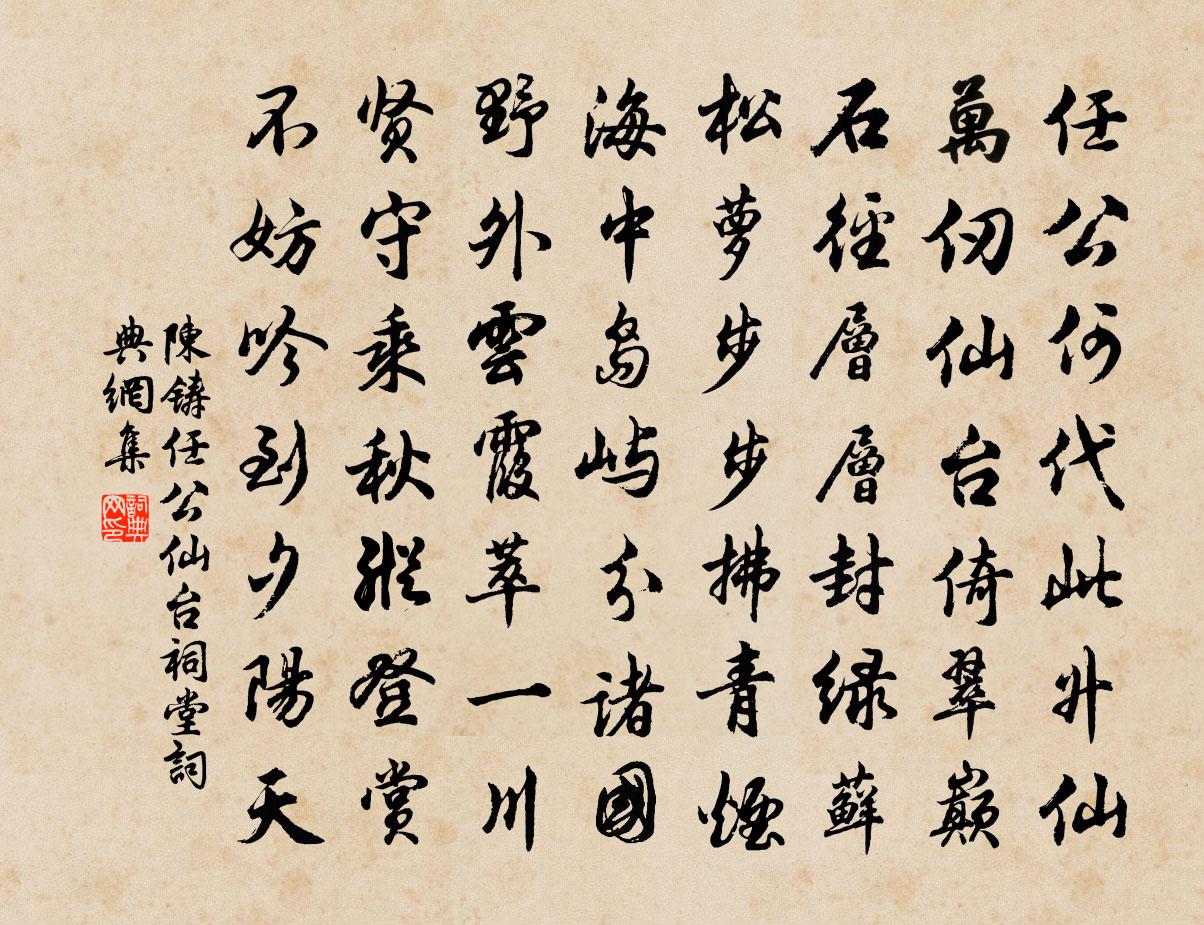 任公何代此升仙
萬仞仙台倚翠巔
石徑層層封緑蘚
松萝步步拂青煙
海中岛屿分諸國
野外雲霞萃一川
贤守乘秋縱登赏
不妨吟到夕陽天
陳鑄任公仙台祠堂詞
典網集
詞典
网印